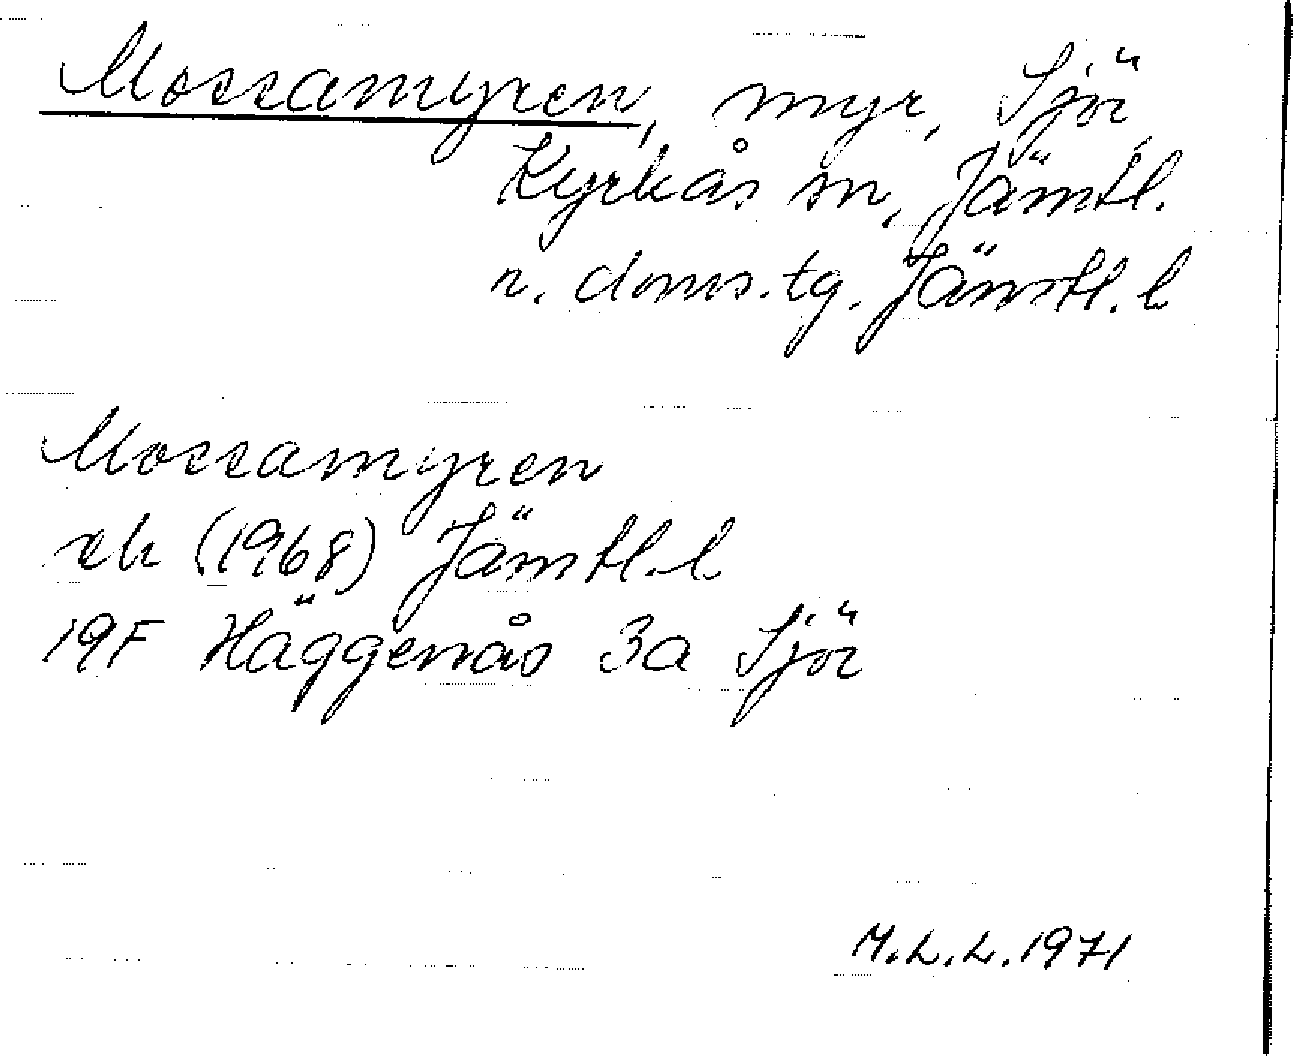 Mossamyren, myr, Sjör,
Kyrkås sn, Jämtl.
n. doms.tg. Jämtl. l
Mossamyren
ek (1968) Jämtl. l
19F Häggenås 3a Sjör
M.L.L. 1971